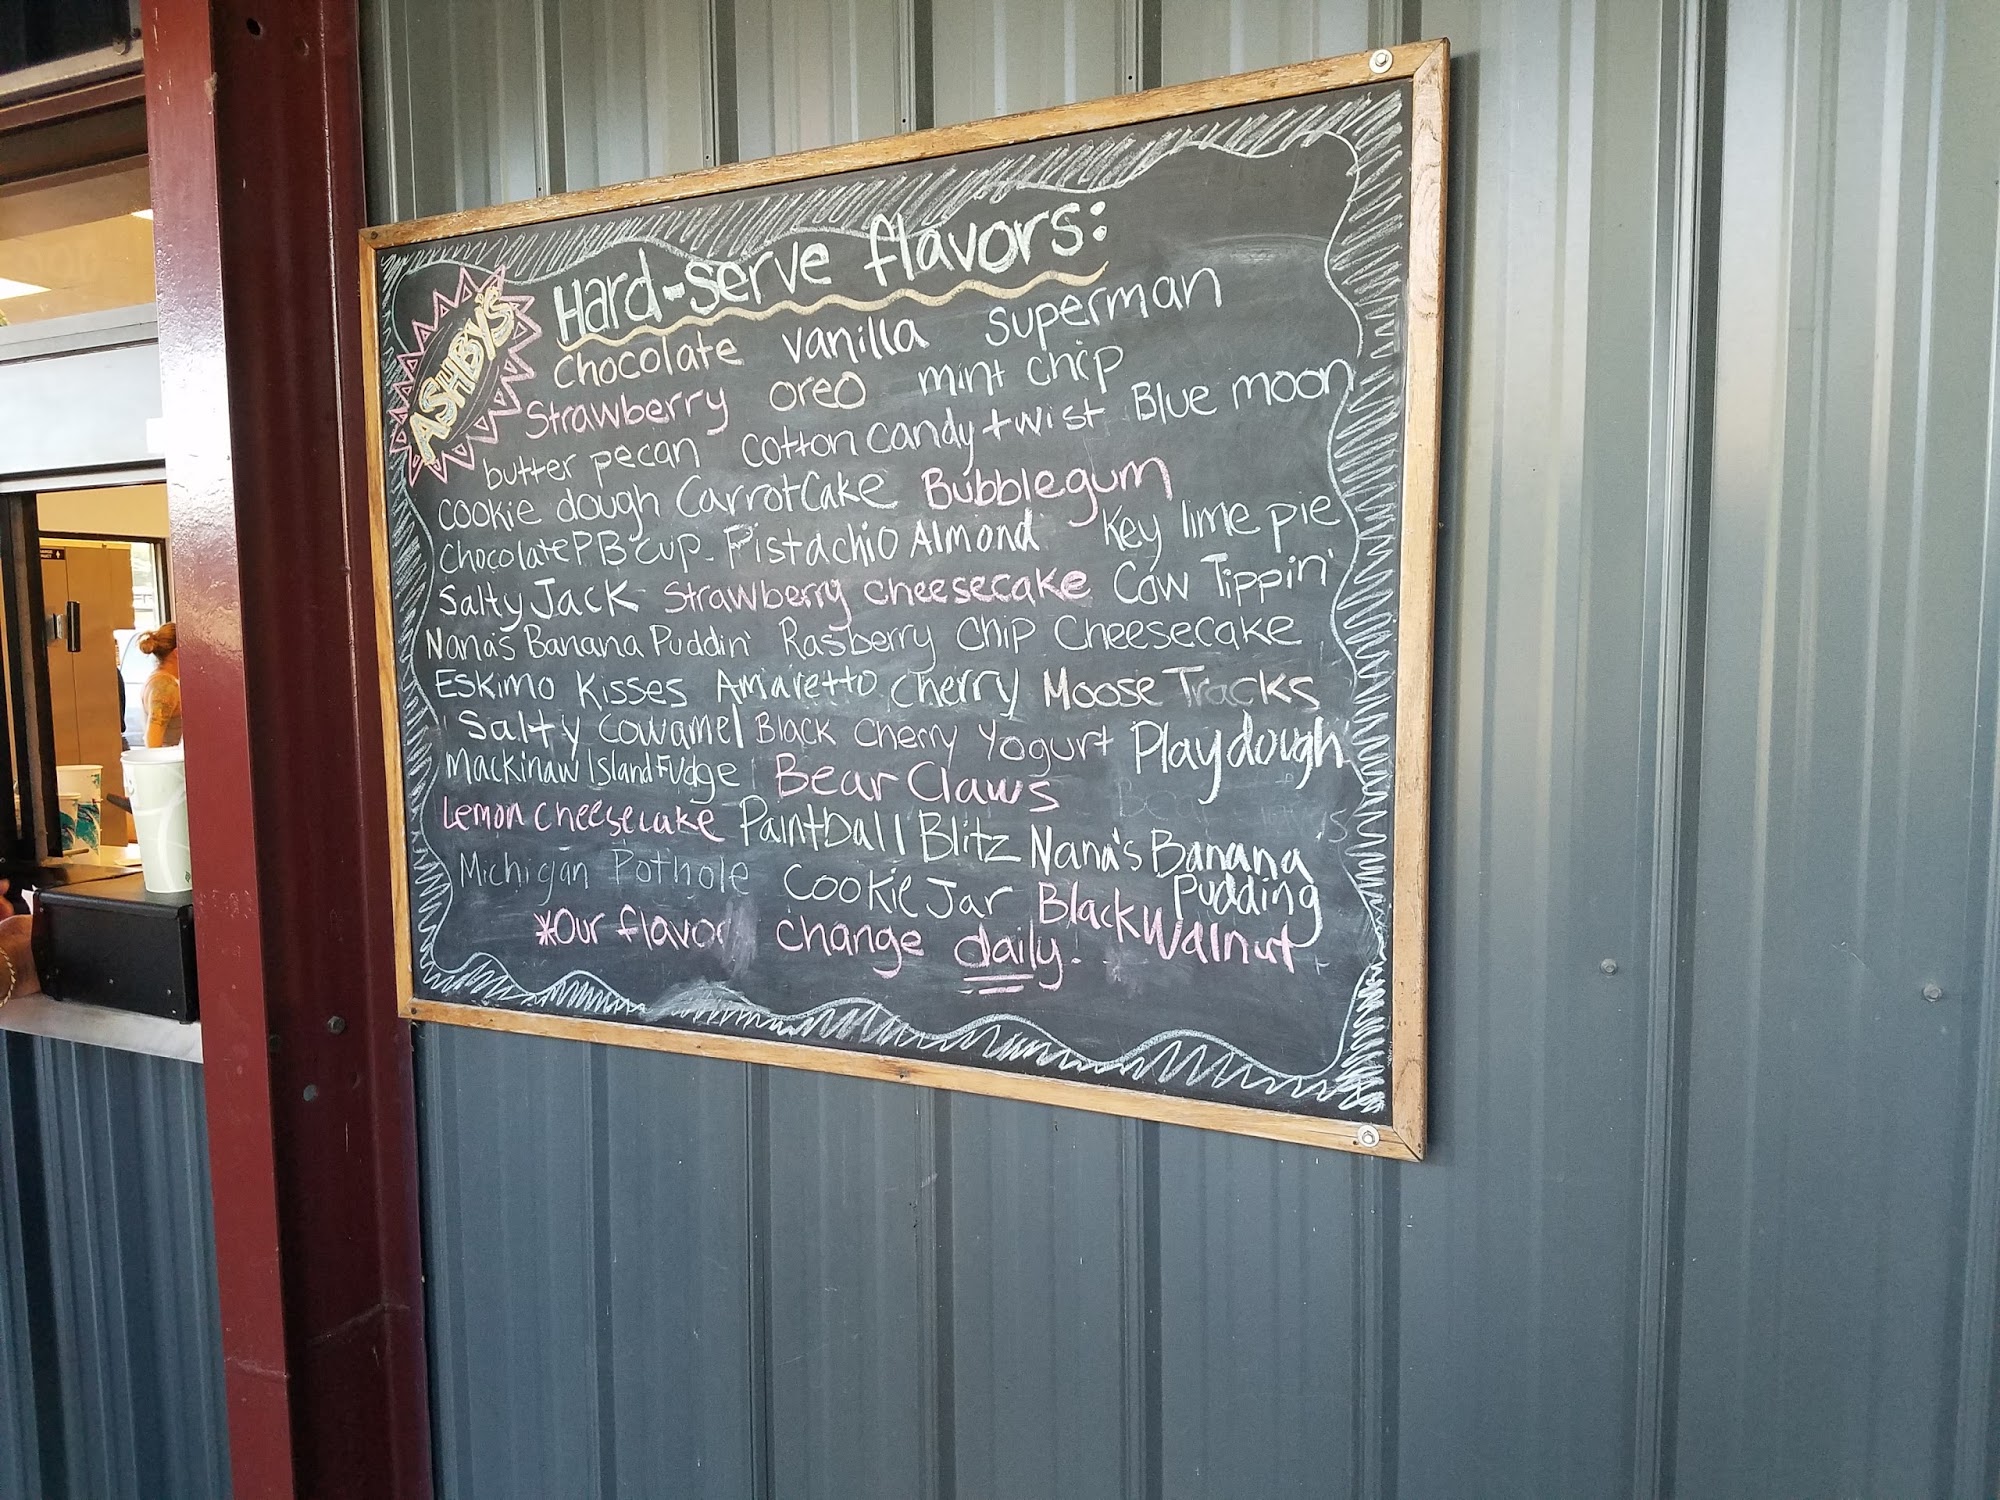 ASHBY'S
Hard-serve flavors:
chocolate vanilla superman
Strawberry oreo mint chip
butter pecan cotton candy twist Blue moon
cookie dough CarrotCake Bubblegum
ChocolatePBcup Pistachio Almond Key lime pie
Salty Jack Strawberry cheesecake Cow Tippin'
Nana's Banana Puddin' Rasberry Chip Cheesecake
Eskimo Kisses Amaretto cherry Moose Tracks
Salty Cowamel Black Cherry Yogurt Playdough
Mackinaw Island Fudge Bear Claws
Lemon cheesecake Paintball Blitz Nana's Banana Pudding
Michigan Pothole Cookie Jar Black Walnut
*Our flavor change daily!